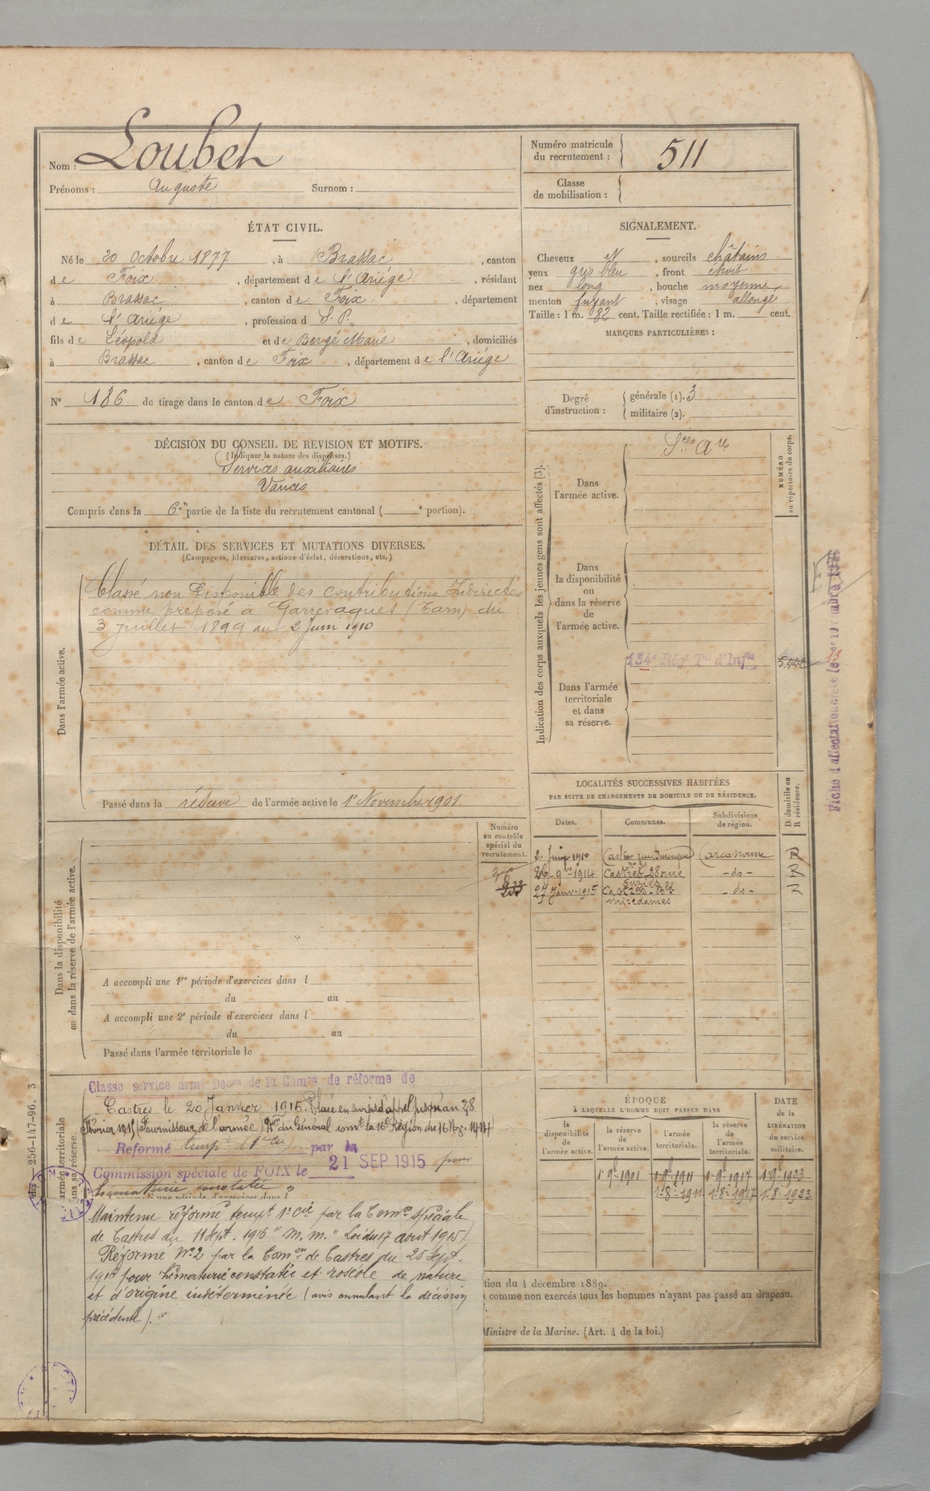 Nom : Loubet
Prénoms : Auguste Surnom :
Numéro matricule
du recrutement : 511
Classe
de mobilisation :
ÉTAT CIVIL.
Né le 20 Octobre 1877, à Brassac, canton
de Foix, département de l'Ariége, résidant
à Brassac, canton de Foix, département
de l'Ariége, profession d S. P.
fils de Léopold et de Bergé Marie, domiciliés
à Brassac, canton de Foix, département de l'Ariége
SIGNALEMENT.
Cheveux N, sourcils châtains
yeux gris bleu, front étroit
nez long, bouche moyenne
menton fuyant, visage allongé
Taille : 1 m. 82 cent. Taille rectifiée : 1 m. cent.
MARQUES PARTICULIÈRES :
N° 186 de tirage dans le canton de Foix
Degré
d'instruction :
générale (1). 3
militaire (2).
DÉCISION DU CONSEIL DE REVISION ET MOTIFS.
(Indiquer la nature des dispenses.)
Services auxiliaires
Varices
Compris dans la 6e partie de la liste du recrutement cantonal ( e portion).
DÉTAIL DES SERVICES ET MUTATIONS DIVERSES.
(Campagnes, blessures, actions d'éclat, décorations, etc.)
Dans l'armée active.
Classé non disponible des contributions Indirectes
comme préposé à Garrevaques (Tarn) du
3 Juillet 1899 au 2 Juin 1910
Passé dans la réserve de l'armée active le 1er Novembre 1901
Indication des corps auxquels les jeunes gens sont affectés (3).
NUMÉRO
au répertoire du corps.
Dans
l'armée active.
Sces Are
Dans
la disponibilité
ou
dans la réserve
de
l'armée active.
134e Régt Tal d'Infie
Dans l'armée
territoriale
et dans
sa réserve.
LOCALITÉS SUCCESSIVES HABITÉES
PAR SUITE DE CHANGEMENTS DE DOMICILE OU DE RÉSIDENCE.
Dates. Communes. Subdivisions
de région. D domicile ou
R résidence.
2 Juin 1910 Carcassonne R
26 9bre 1914 Castres -do- R
27 Janv. 1915 Castres -do- R
Dans la disponibilité
ou dans la réserve de l'armée active.
Numéro
au contrôle
spécial du
recrutement.
A accompli une 1re période d'exercices dans l
du au
A accompli une 2e période d'exercices dans l
du au
Passé dans l'armée territoriale le
256-147-96. 3
Classé service armé Décon de la Comon de réforme de
Castres le 20 Janvier 1915. Placé en sursis d'appel jusqu'au 28
Février 1915 (Fournisseur de l'armée)
Réformé tempre 1re cie par la
Commission spéciale de FOIX le 21 SEP 1915 pour
hématurie constatée
Maintenu réformé tempt 1e cie par la Comon spéciale
de Castres du 11 Sept. 1916 "M. M." Loi du 17 aout 1915)
Réformé No 2 par la Comon de Castres du 25 Sept.
1917 pour hématurie constatée et roséole de nature
et d'origine indéterminée (avis annulant la décision
précédente).
ÉPOQUE
À LAQUELLE L'HOMME DOIT PASSER DANS
DATE
de la
LIBÉRATION
du service
militaire.
la
disponibilité
de
l'armée active.
la réserve
de
l'armée active.
l'armée
territoriale.
la réserve
de
l'armée
territoriale.
1.9.1901 1.9.1911 1.9.1917 1.9.1923
1.8.1911 1.8.1917 1.8.1923
tion du 4 décembre 1889.
comme non exercés tous les hommes n'ayant pas passé au drapeau.
Ministre de la Marine. (Art. 4 de la loi.)